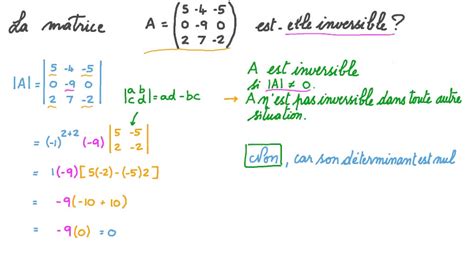 La matrice A = (5 -4 -5 est-elle inversible ?
0 -9 0
2 7 -2)
|A| = |5 -4 -5|
|0 -9 0|
|2 7 -2|
|a b|
|c d| = ad - bc
= (-1)^{2+2} (-9) |5 -5|
|2 -2|
= 1(-9)[5(-2)-(-5)2]
= -9(-10 + 10)
= -9(0) = 0
A est inversible
si |A| ≠ 0.
→ A n'est pas inversible dans toute autre
situation.
Non, car son déterminant est nul